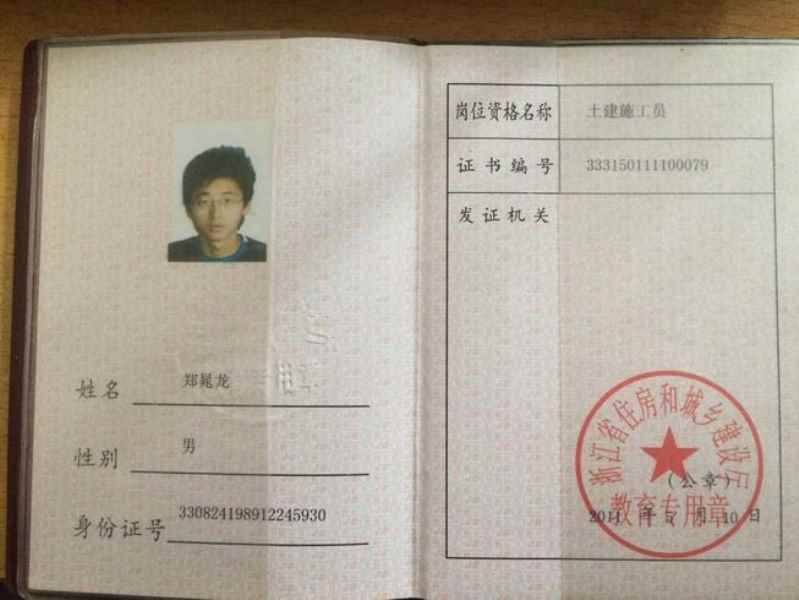 姓名 郑晁龙
性别 男
身份证号 330824198912245930
岗位资格名称 土建施工员
证书编号 333150111100079
发证机关
浙江省住房和城乡建设厅
(公章)
教育专用章
2011 年 7 月 10 日